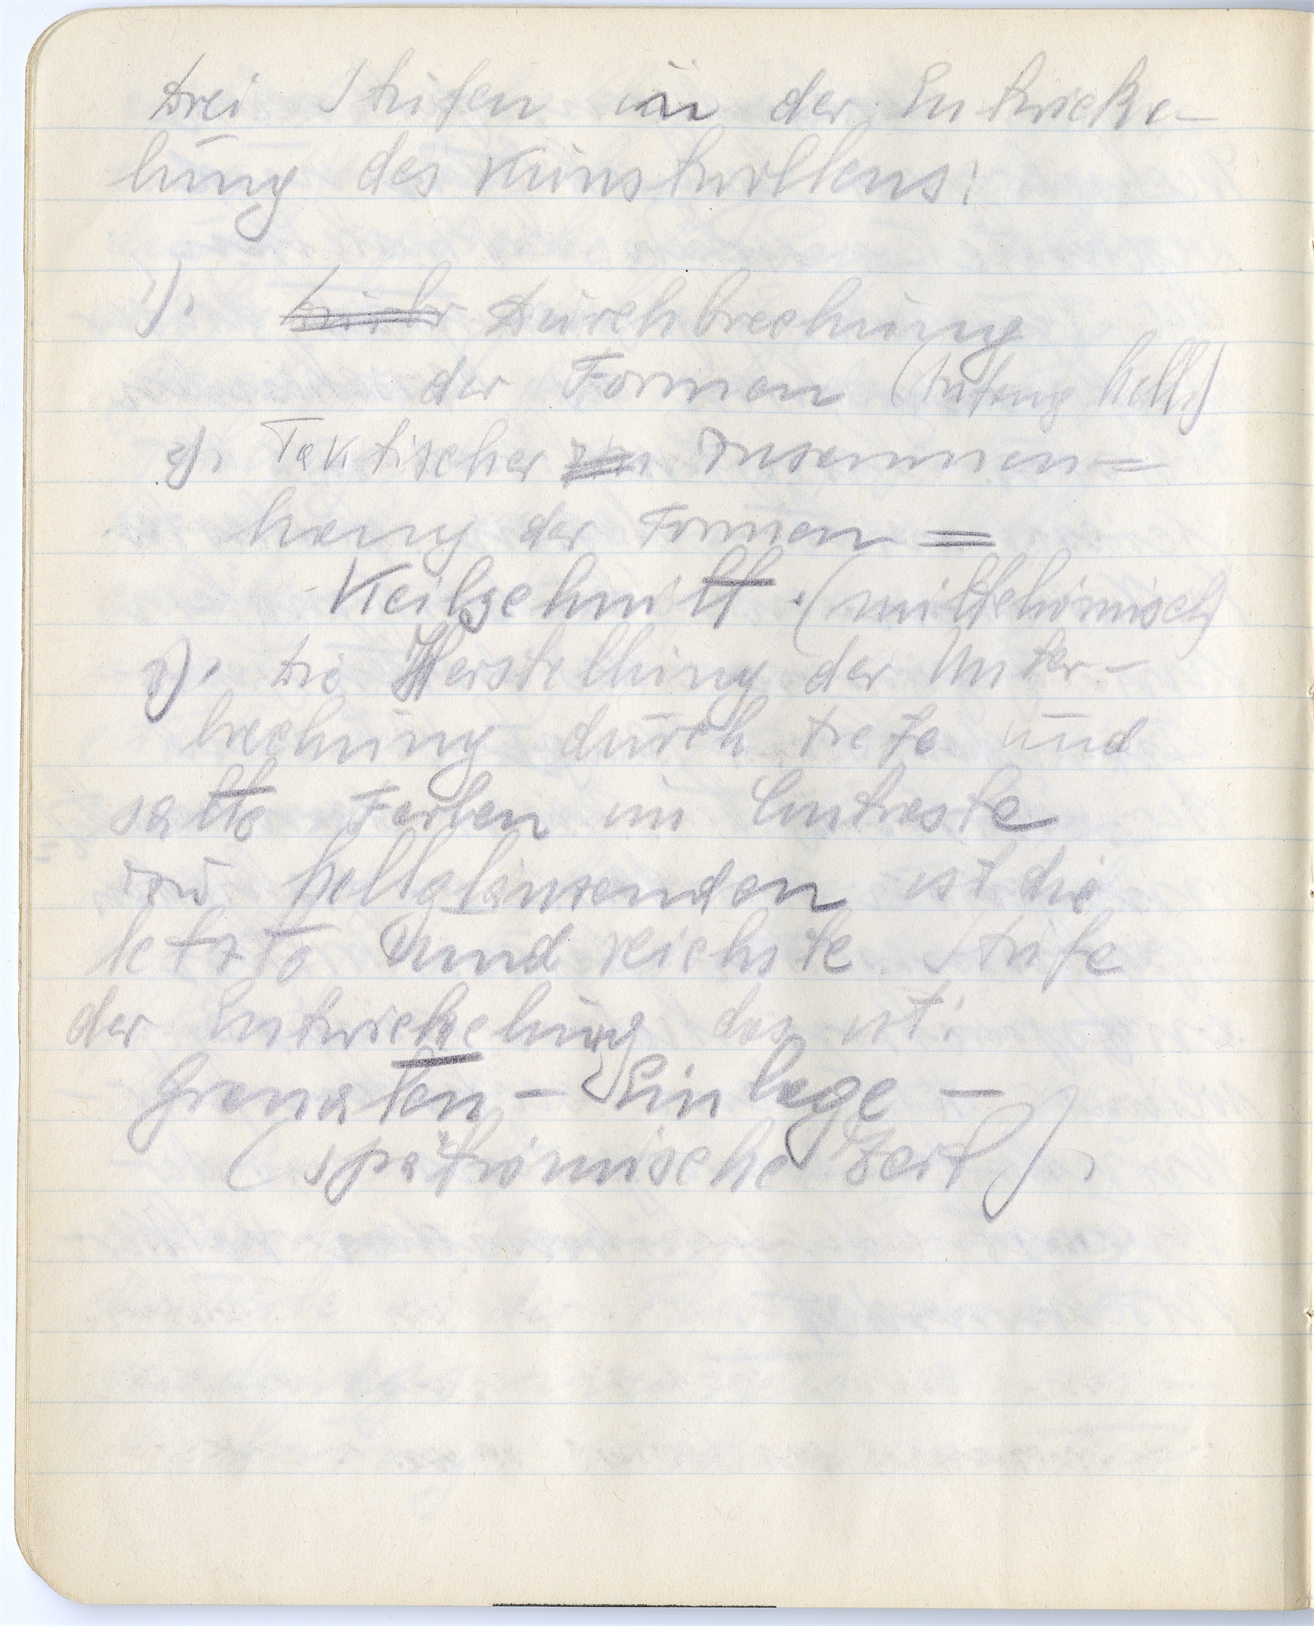 Drei Stufen in der Entwicke-
lung des Kunstwollens:
1). Durchbrechung
der Formen (Anfang hell)
2). Taktischer Zusammen=
hang der Formen =
Keilschnitt. (mittelrömisch)
3). Die Herstellung der Unter-
brechung durch tiefe und
satte Farben im Contraste
zu hellglänzenden ist die
letzte und reichste Stufe
der Entwickelung das ist:
Granaten - Einlage -
(spätrömische Zeit).